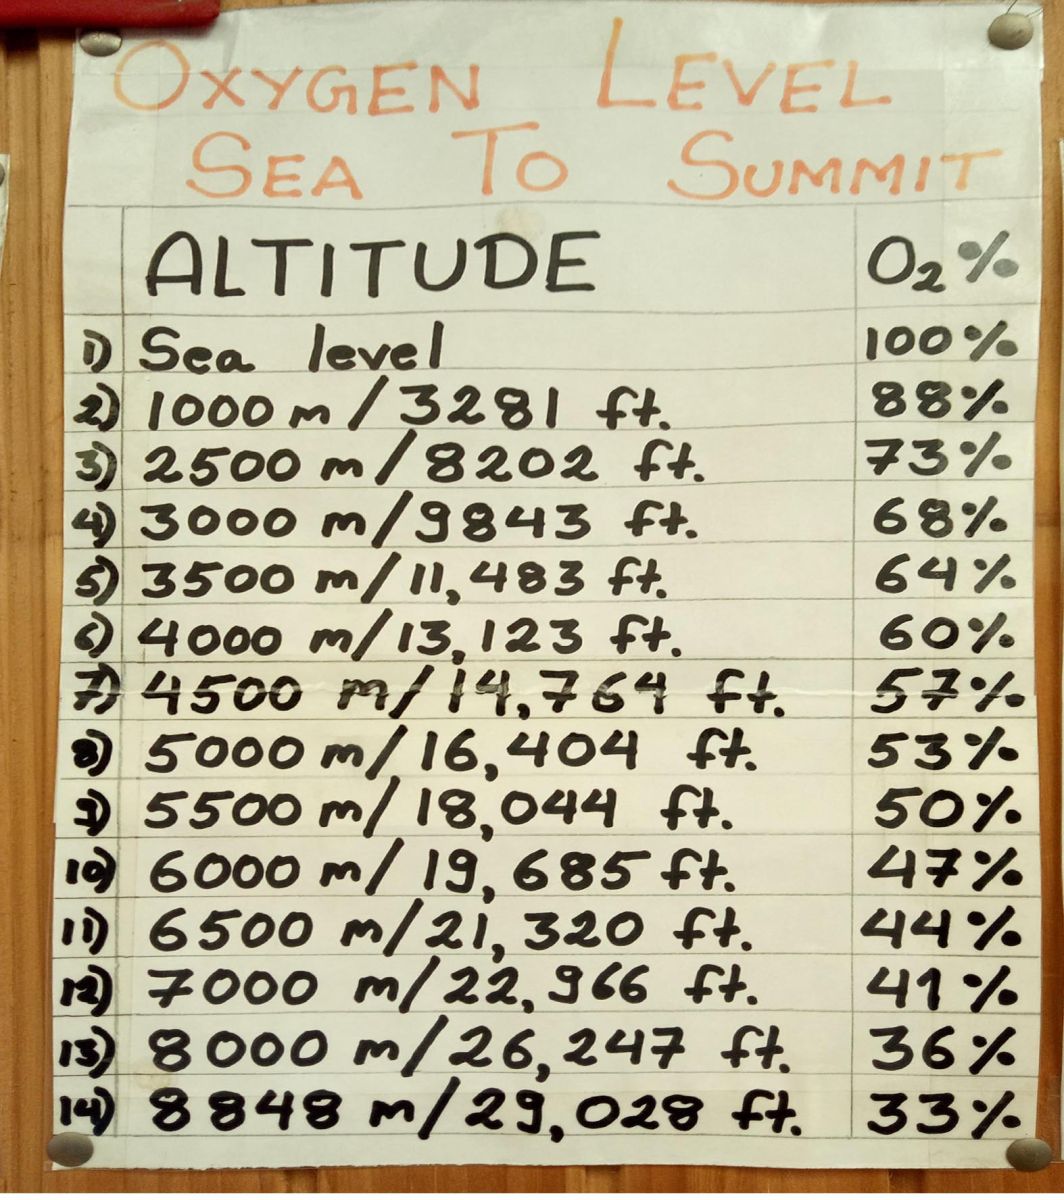 OXYGEN LEVEL
SEA TO SUMMIT
ALTITUDE O₂%
1) Sea level 100%
2) 1000 m/3281 ft. 88%
3) 2500 m/8202 ft. 73%
4) 3000 m/9843 ft. 68%
5) 3500 m/11,483 ft. 64%
6) 4000 m/13,123 ft. 60%
7) 4500 m/14,764 ft. 57%
8) 5000 m/16,404 ft. 53%
9) 5500 m/18,044 ft. 50%
10) 6000 m/19,685 ft. 47%
11) 6500 m/21,320 ft. 44%
12) 7000 m/22,966 ft. 41%
13) 8000 m/26,247 ft. 36%
14) 8848 m/29,028 ft. 33%